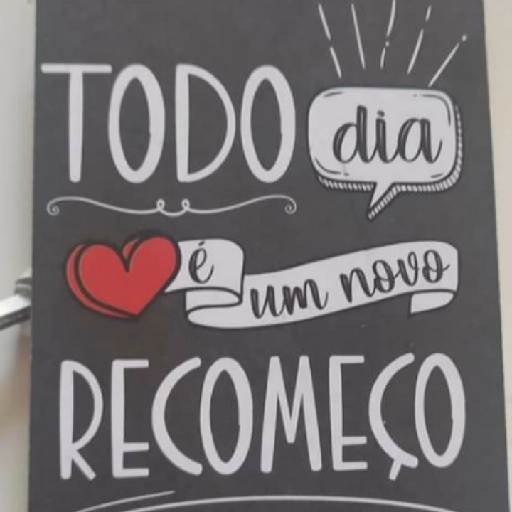 TODO dia
é um novo
RECOMEÇO